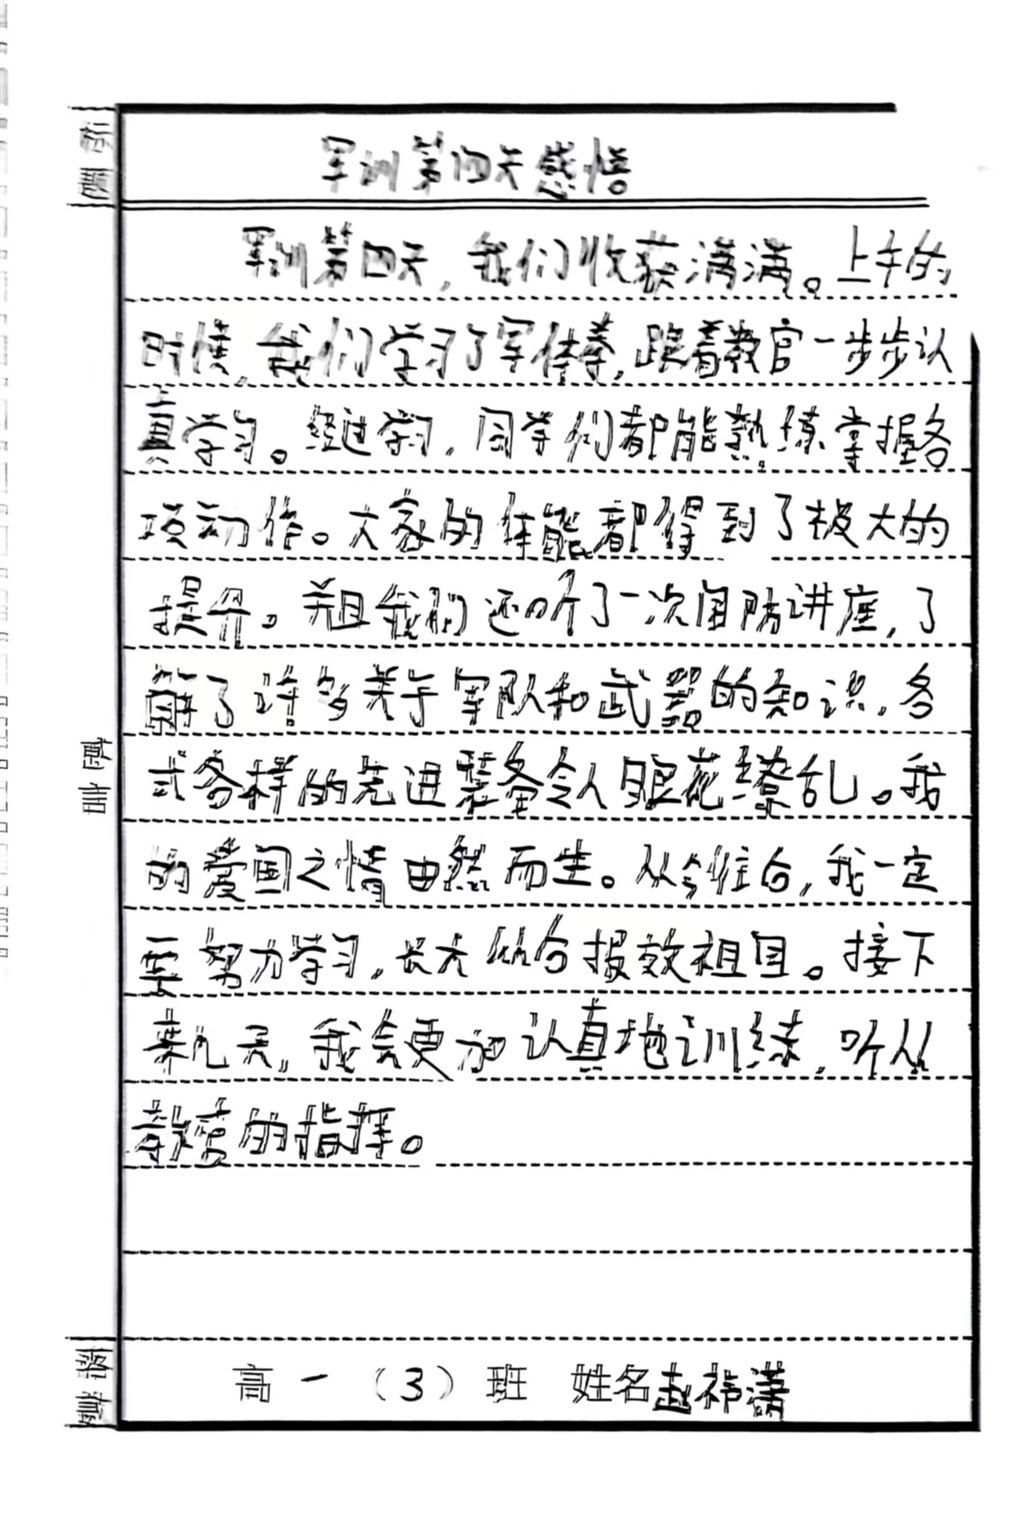 标题
军训第四天感悟
军训第四天，我们收获满满。上午的
时候，我们学习了军体拳，跟着教官一步步认
真学习。经过学习，同学们都能熟练掌握各
项动作。大家的体能都得到了极大的
提升。并且我们还听了一次国防讲座，了
解了许多关于军队和武器的知识，各
式各样的先进装备令人眼花缭乱。我
的爱国之情由然而生。从今往后，我一定
要努力学习，长大以后报效祖国。接下
来几天，我会更加认真地训练，听从
教官的指挥。
感言
落款
高一（3）班 姓名赵祎潇